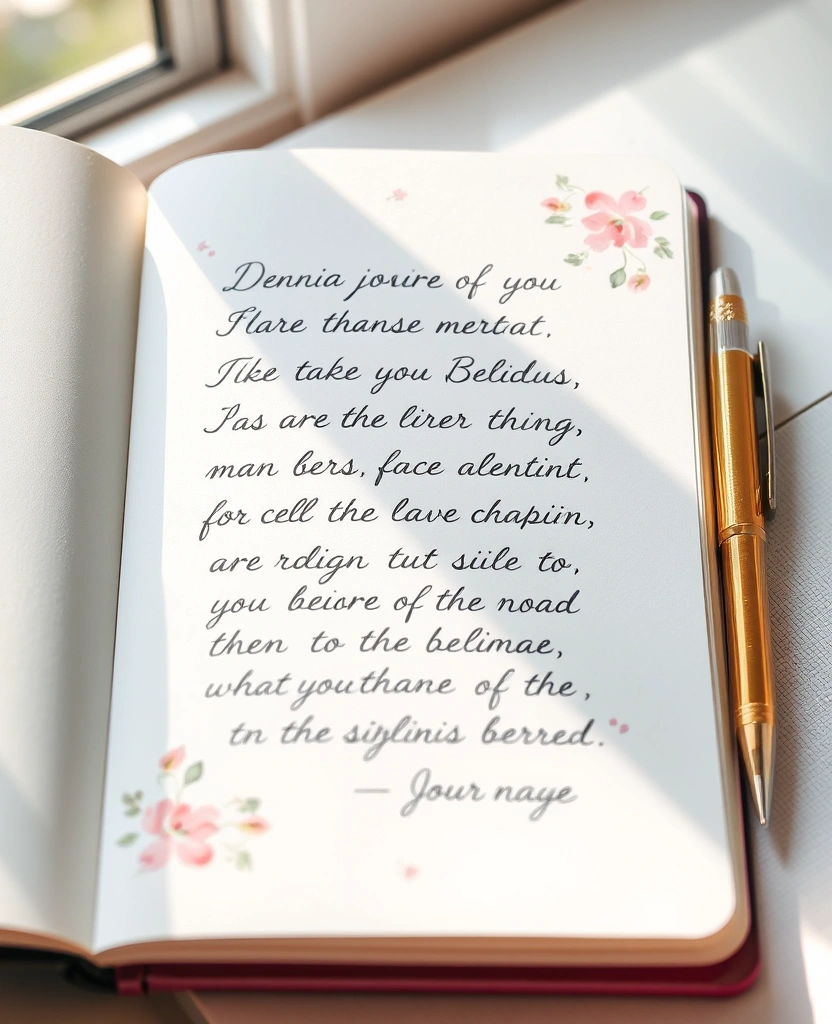 Dennia joure of you
Flare thanse mertat.
Tike take you Belidus,
Pas are the lirer thing,
man bers, face alentint,
for cell the lave chapiin,
are rdign tut siile to,
you beiore of the noad
then to the belimae,
what youthane of the,
tn the siylinis berred.
— Jour naye